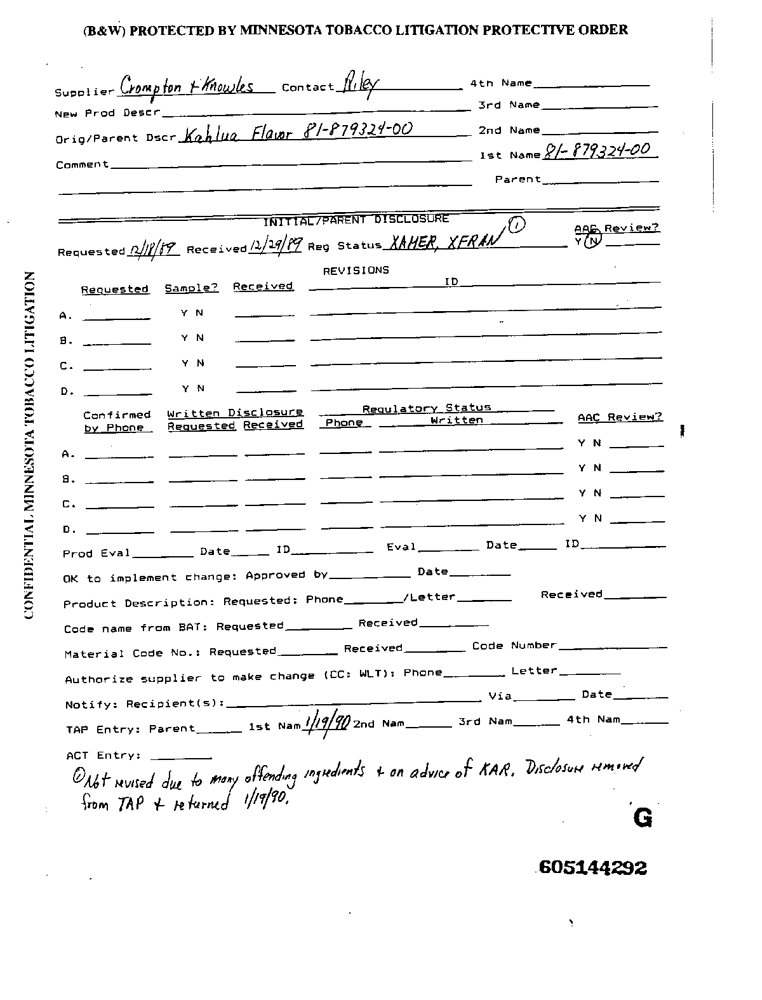 (B&W) PROTECTED BY MINNESOTA TOBACCO LITIGATION PROTECTIVE ORDER
Supplier Crompton + Knowles Contact Riley 4th Name
New Prod Descr 3rd Name
Orig/Parent Dscr Kahlua Flavor 81-879324-00 2nd Name
Comment 1st Name 81-879324-00
Parent
INITIAL/PARENT DISCLOSURE
Requested 12/18/89 Received 12/29/89 Reg Status XAHER, XFRAN ① Review?
Y N
REVISIONS
Requested Sample? Received ID
A. Y N
B. Y N
C. Y N
D. Y N
Confirmed Written Disclosure Regulatory Status AAC Review?
by Phone Requested Received Phone Written
A. Y N
B. Y N
C. Y N
D. Y N
Prod Eval Date ID Eval Date ID
OK to implement change: Approved by Date
Product Description: Requested: Phone /Letter Received
Code name from BAT: Requested Received
Material Code No.: Requested Received Code Number
Authorize supplier to make change (CC: WLT): Phone Letter
Notify: Recipient(s): Via Date
TAP Entry: Parent 1st Nam 1/19/90 2nd Nam 3rd Nam 4th Nam
ACT Entry:
① Not revised due to many offending ingredients + on advice of KAR. Disclosure removed
from TAP + returned 1/19/90.
G
605144292
CONFIDENTIAL MINNESOTA TOBACCO LITIGATION